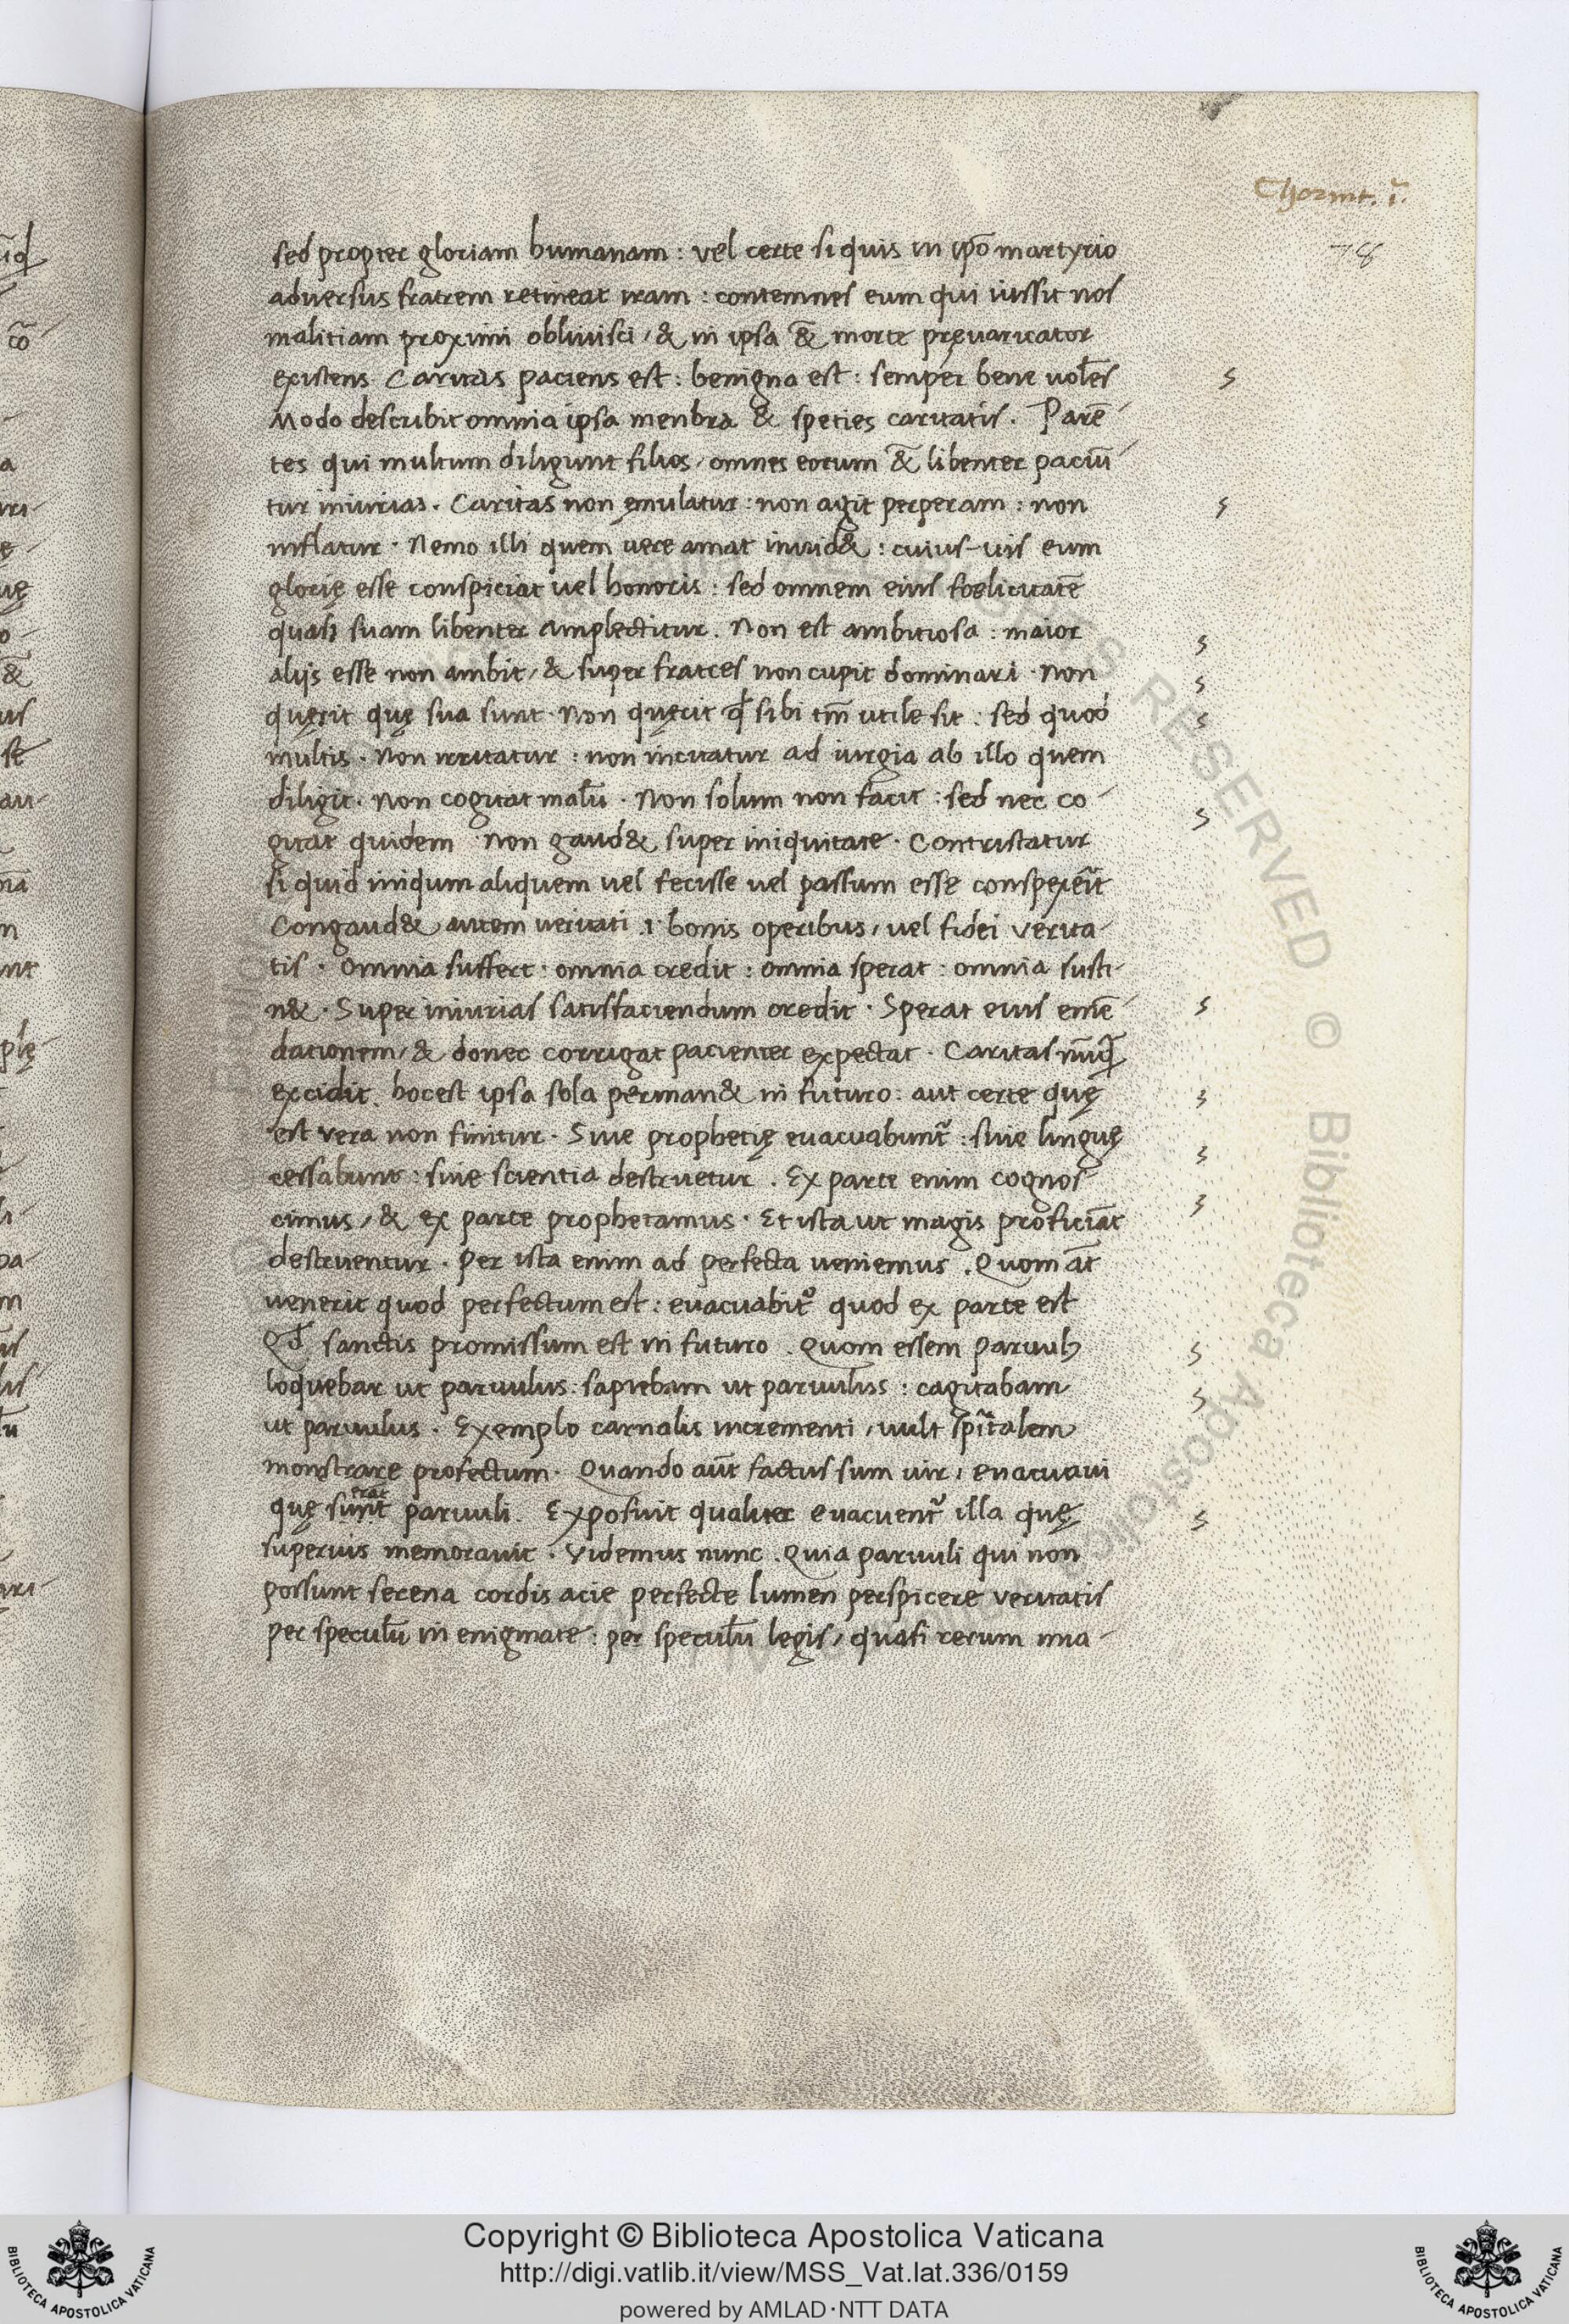 Chorint. i.
78
sed propter gloriam humanam : vel certe si quis in ip̄o martyrio
adversus fratrem retineat iram : contemnes eum qui iussit nos
malitiam proximi oblivisci / & in ipsa &̄ morte pręvaricator
existens Caritas paciens est : benigna est : semper bene uolēs
Modo describit omnia ipsa menbra & speties caritatis . Parē-
tes qui multum diligunt filios / omnes eorum &̄ libenter paciū-
tur iniurias . Caritas non ęmulatur : non agit perperam : non
inflatur . Nemo illi quem uere amat inuid& : cuius-uis eum
glorię esse conspiciat uel honoris : sed omnem eius foelicitatē
quasi suam libenter amplectitur . Non est ambitiosa : maior
alijs esse non ambit / & super fratres non cupit dominari . Non
quęrit quę sua sunt . Non quęrit qd̄ sibi tm̄ utile sit : sed quod
multis . Non irritatur : non incitatur ad iurgia ab illo quem
diligit . Non cogitat malū . Non solum non facit : sed nec co-
gitat quidem Non gaud& super iniquitate . Contristatur
si quid iniqum aliquem uel fecisse uel passum esse conspexeīt
Congaud& autem ueritati .i. bonis operibus / uel fidei verita-
tis . Omnia suffert : omnia credit : omnia sperat : omnia susti-
n& . Super iniurias satisfaciendum credit . Sperat eius emē-
dationem / & donec corrigat pacienter expectat . Caritas nūq̄
excidit . hoc est ipsa sola perman& in futuro : aut certe quę
est vera non finitur . Siue prophetię euacuabunt᷑ : siue linguę
cessabunt : siue scientia destruetur . Ex parte enim cognos-
cimus / & ex parte prophetamus . Et ista ut magis proficiāt
destruentur . Per ista enim ad perfecta ueniemus . Quom āt
uenerit quod perfectum est : euacuabit᷑ quod ex parte est
Qd̄ sanctis promissum est in futuro . Quom essem paruul;
loquebar ut paruulus : sapiebam ut paruulus : cagitabam
ut paruulus . Exemplo carnalis incrementi / uult sp̄italem
monstrare profectum . Quando aūt factus sum uir / euacuaui
erat
quę sunt paruuli . Exposuit qualiter evacuent᷑ illa quę
superius memorauit . Videmus nunc . Quia paruuli qui non
possunt serena cordis acie perfecte lumen perspicere veritatis
per speculū in enigmate : per speculū legis / quasi rerum ima-
Copyright © Biblioteca Apostolica Vaticana
http://digi.vatlib.it/view/MSS_Vat.lat.336/0159
powered by AMLAD·NTT DATA